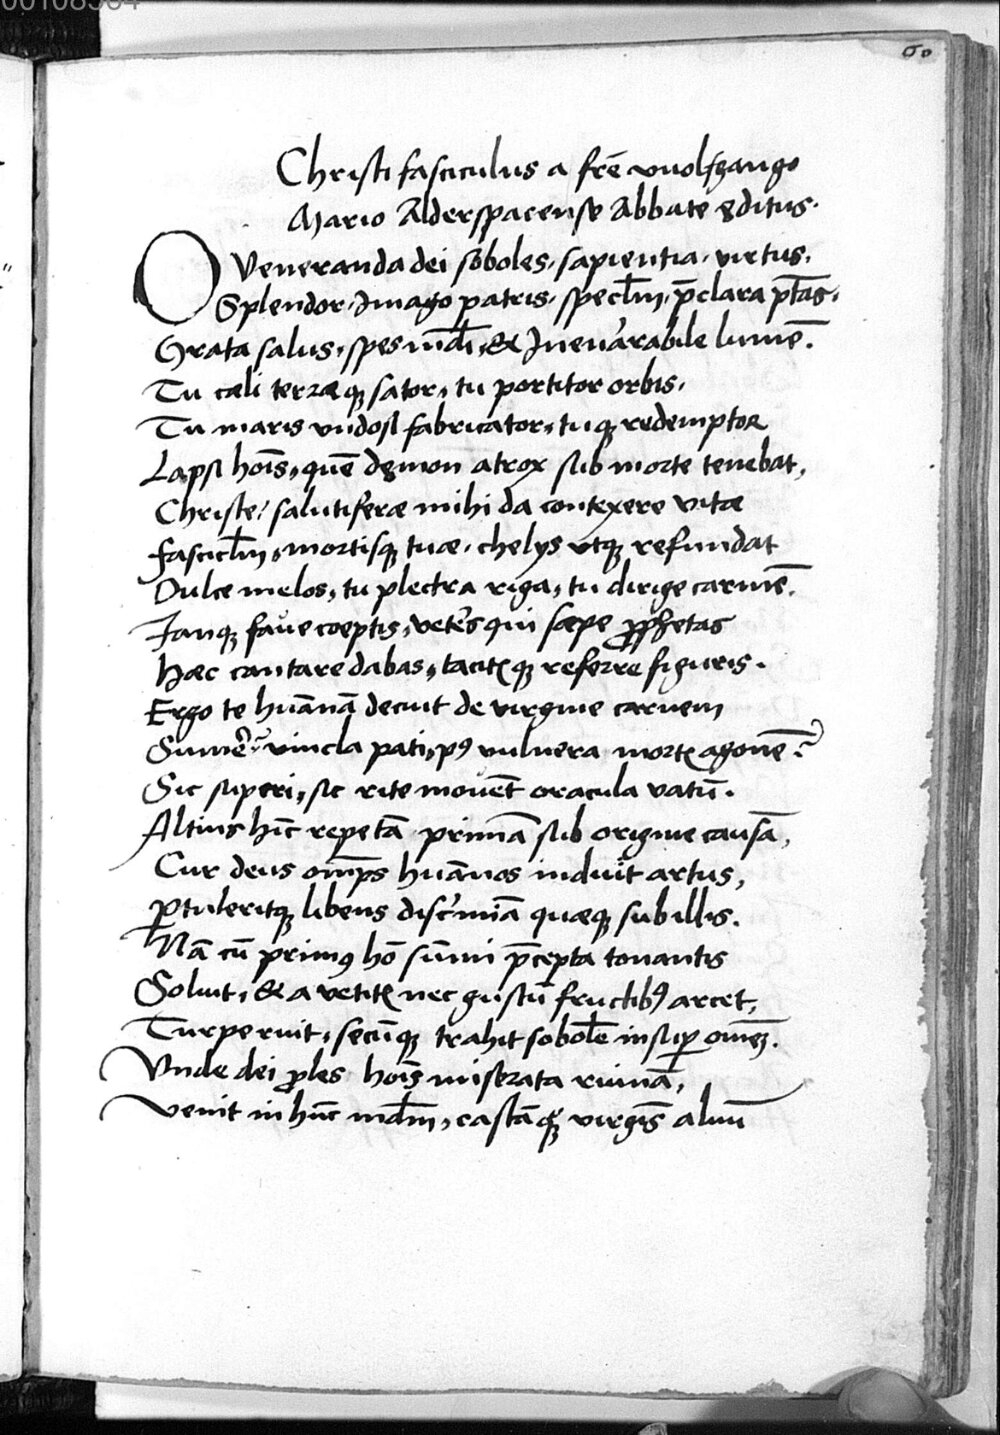 60
Christi fasciculus a frē vuolfgango
Mario Alderspacense Abbate ęditus.
O Veneranda dei soboles, sapientia, virtus,
Splendor, Imago patris, specl̄m, p̄clara ptās,
Grata salus, spes mūdi, & Inenarrabile lumē.
Tu cæli terræq; sator, tu portitor orbis,
Tu maris vndosi fabricator, tuq; redemptor
Lapsi hoīs, quē dęmon atrox sub morte tenebat,
Christe! salutiferæ mihi da contexere vitæ
fascicl̄m, mortisq; tuæ, chelys vtq; refundat
Dulce melos, tu plectra riga, tu dirige carmē.
Ianq; faue coeptis, veteres qui sæpe prophetas
Hæc cantare dabas, tacitisq; referre figuris.
Ergo te huānā decuit de virgine carnem
Sumere? vincla pati, p9 vulnera mortis agonē?
Sic superi, sic rite mouēt oracula vatū.
Altius hīc repetā primā sub origine causā,
Cur deus omp̄s huānos induit artus,
ptuleritq; libens discrīmīa quæq; sub illis.
Nā cū prim9 hō sūmi p̄cepta tonantis
Soluit, & a vetitis nec gustū fructib9 arcet,
Turpe ruit, secūq; trahit sobolē insup omēz.
Vnde dei ples hoīs miserata ruinā,
Venit in hūc mūdm, castāq; virgīs aluū